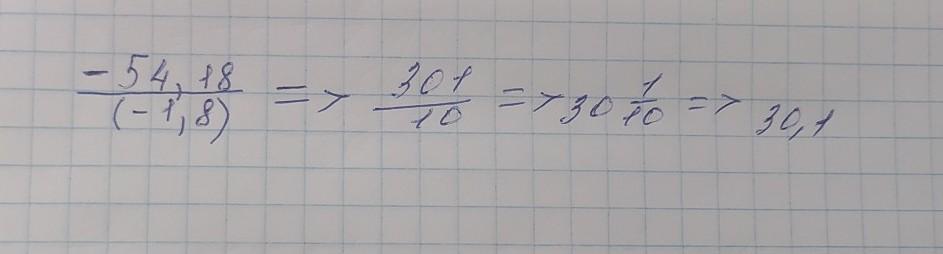 -54,18/(-1,8) => 301/10 => 30 1/10 => 30,1